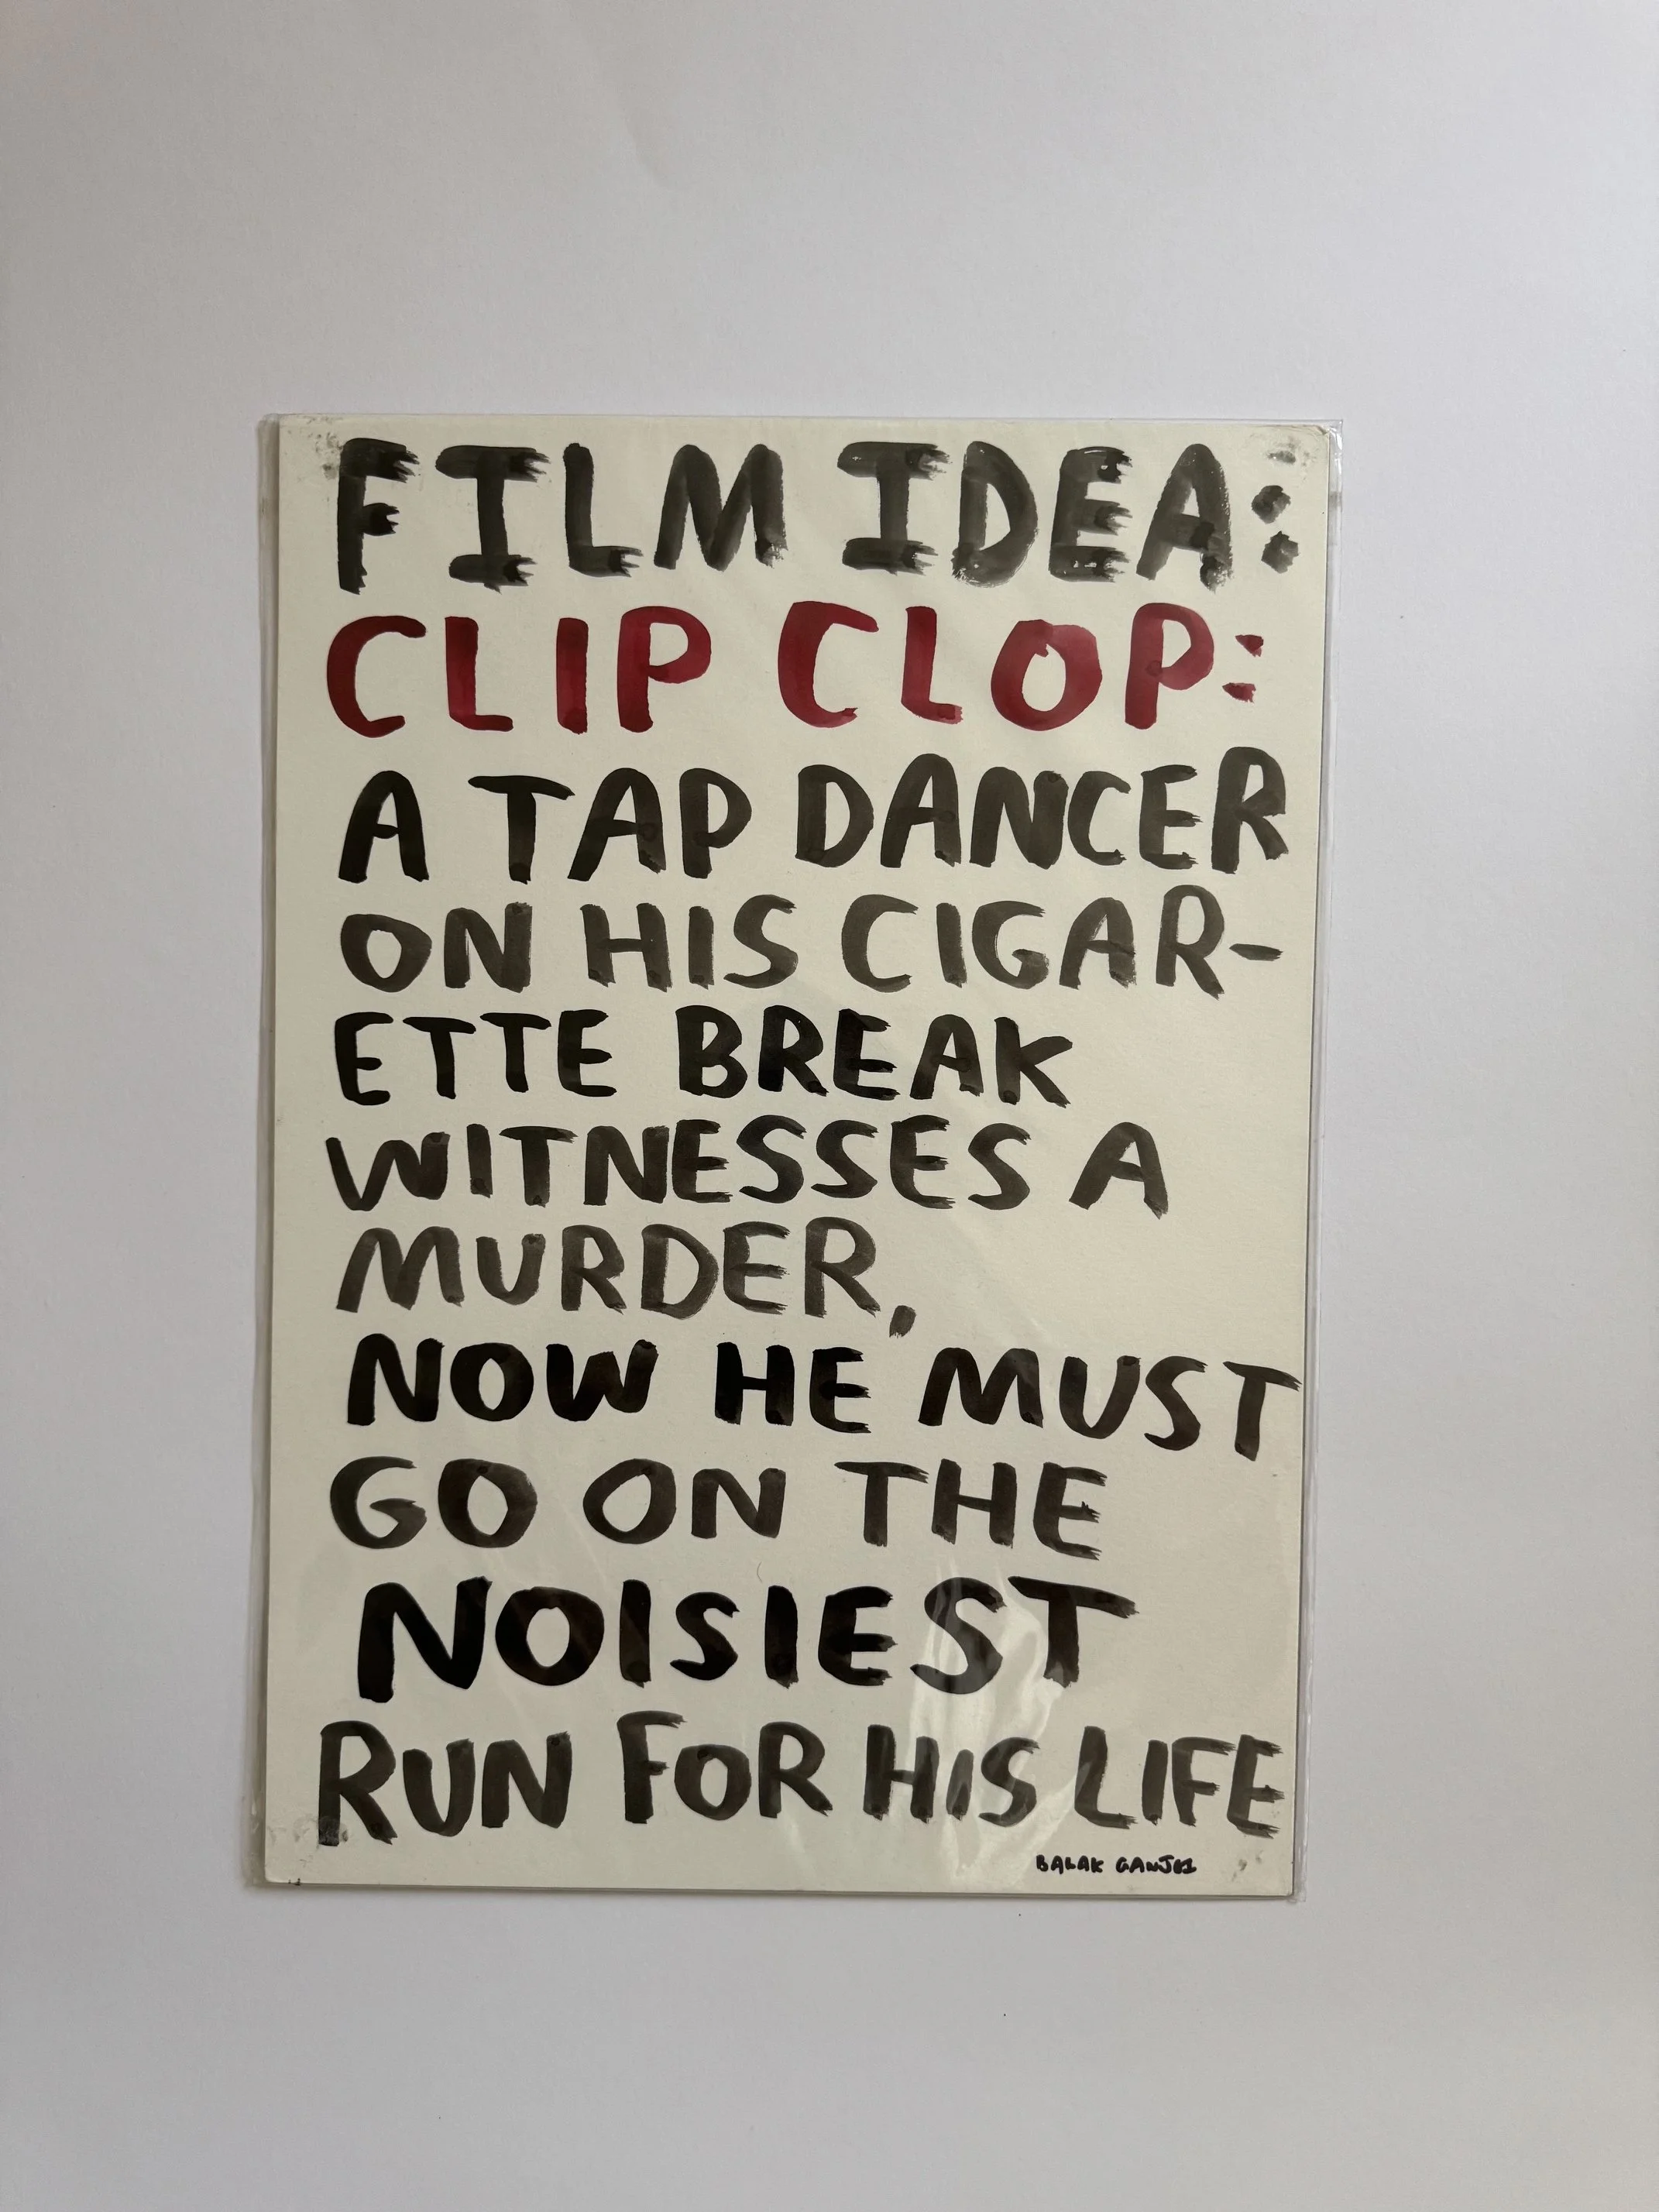 FILM IDEA:
CLIP CLOP:
A TAP DANCER
ON HIS CIGAR-
ETTE BREAK
WITNESSES A
MURDER,
NOW HE MUST
GO ON THE
NOISIEST
RUN FOR HIS LIFE
BALAK